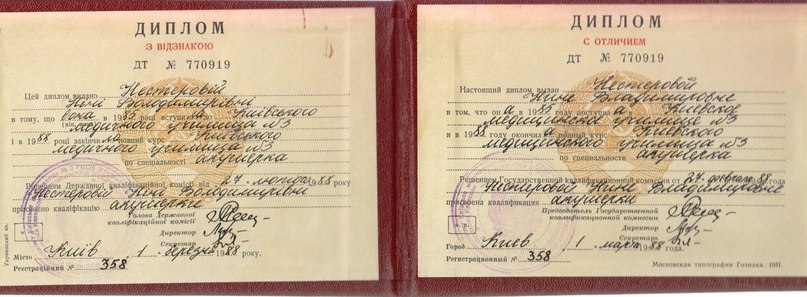 ДИПЛОМ
З ВІДЗНАКОЮ
ДТ № 770919
Цей диплом видано Нестеровій
Ніні Володимирівні
в тому, що вона в 1985 році вступила до Київського
медичного училища №3
і в 1988 році закінчила повний курс Київського
медичного училища №3
по спеціальності акушерка
Рішенням Державної кваліфікаційної комісії від 27 лютого 1988 року
Нестеровій Ніні Володимирівні
присвоєно кваліфікацію акушерки
Голова Державної
кваліфікаційної комісії
Директор
Секретар
Місто Київ 1 березня 1988 року.
Реєстраційний № 358
Украинский яз.
ДИПЛОМ
С ОТЛИЧИЕМ
ДТ № 770919
Настоящий диплом выдан Нестеровой
Нине Владимировне
в том, что она в 1985 году поступила в Киевское
медицинское училище №3
и в 1988 году окончила полный курс Киевского
медицинского училища №3
по специальности акушерка
Решением Государственной квалификационной комиссии от 27 февраля 1988 г.
Нестеровой Нине Владимировне
присвоена квалификация акушерки
Председатель Государственной
квалификационной комиссии
Директор
Секретарь
Город Киев 1 марта 1988 года.
Регистрационный № 358
Московская типография Гознака. 1981.